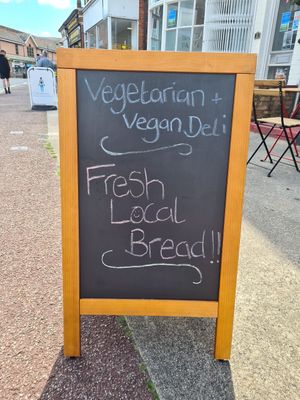 Vegetarian +
Vegan Deli
Fresh
Local
Bread!!